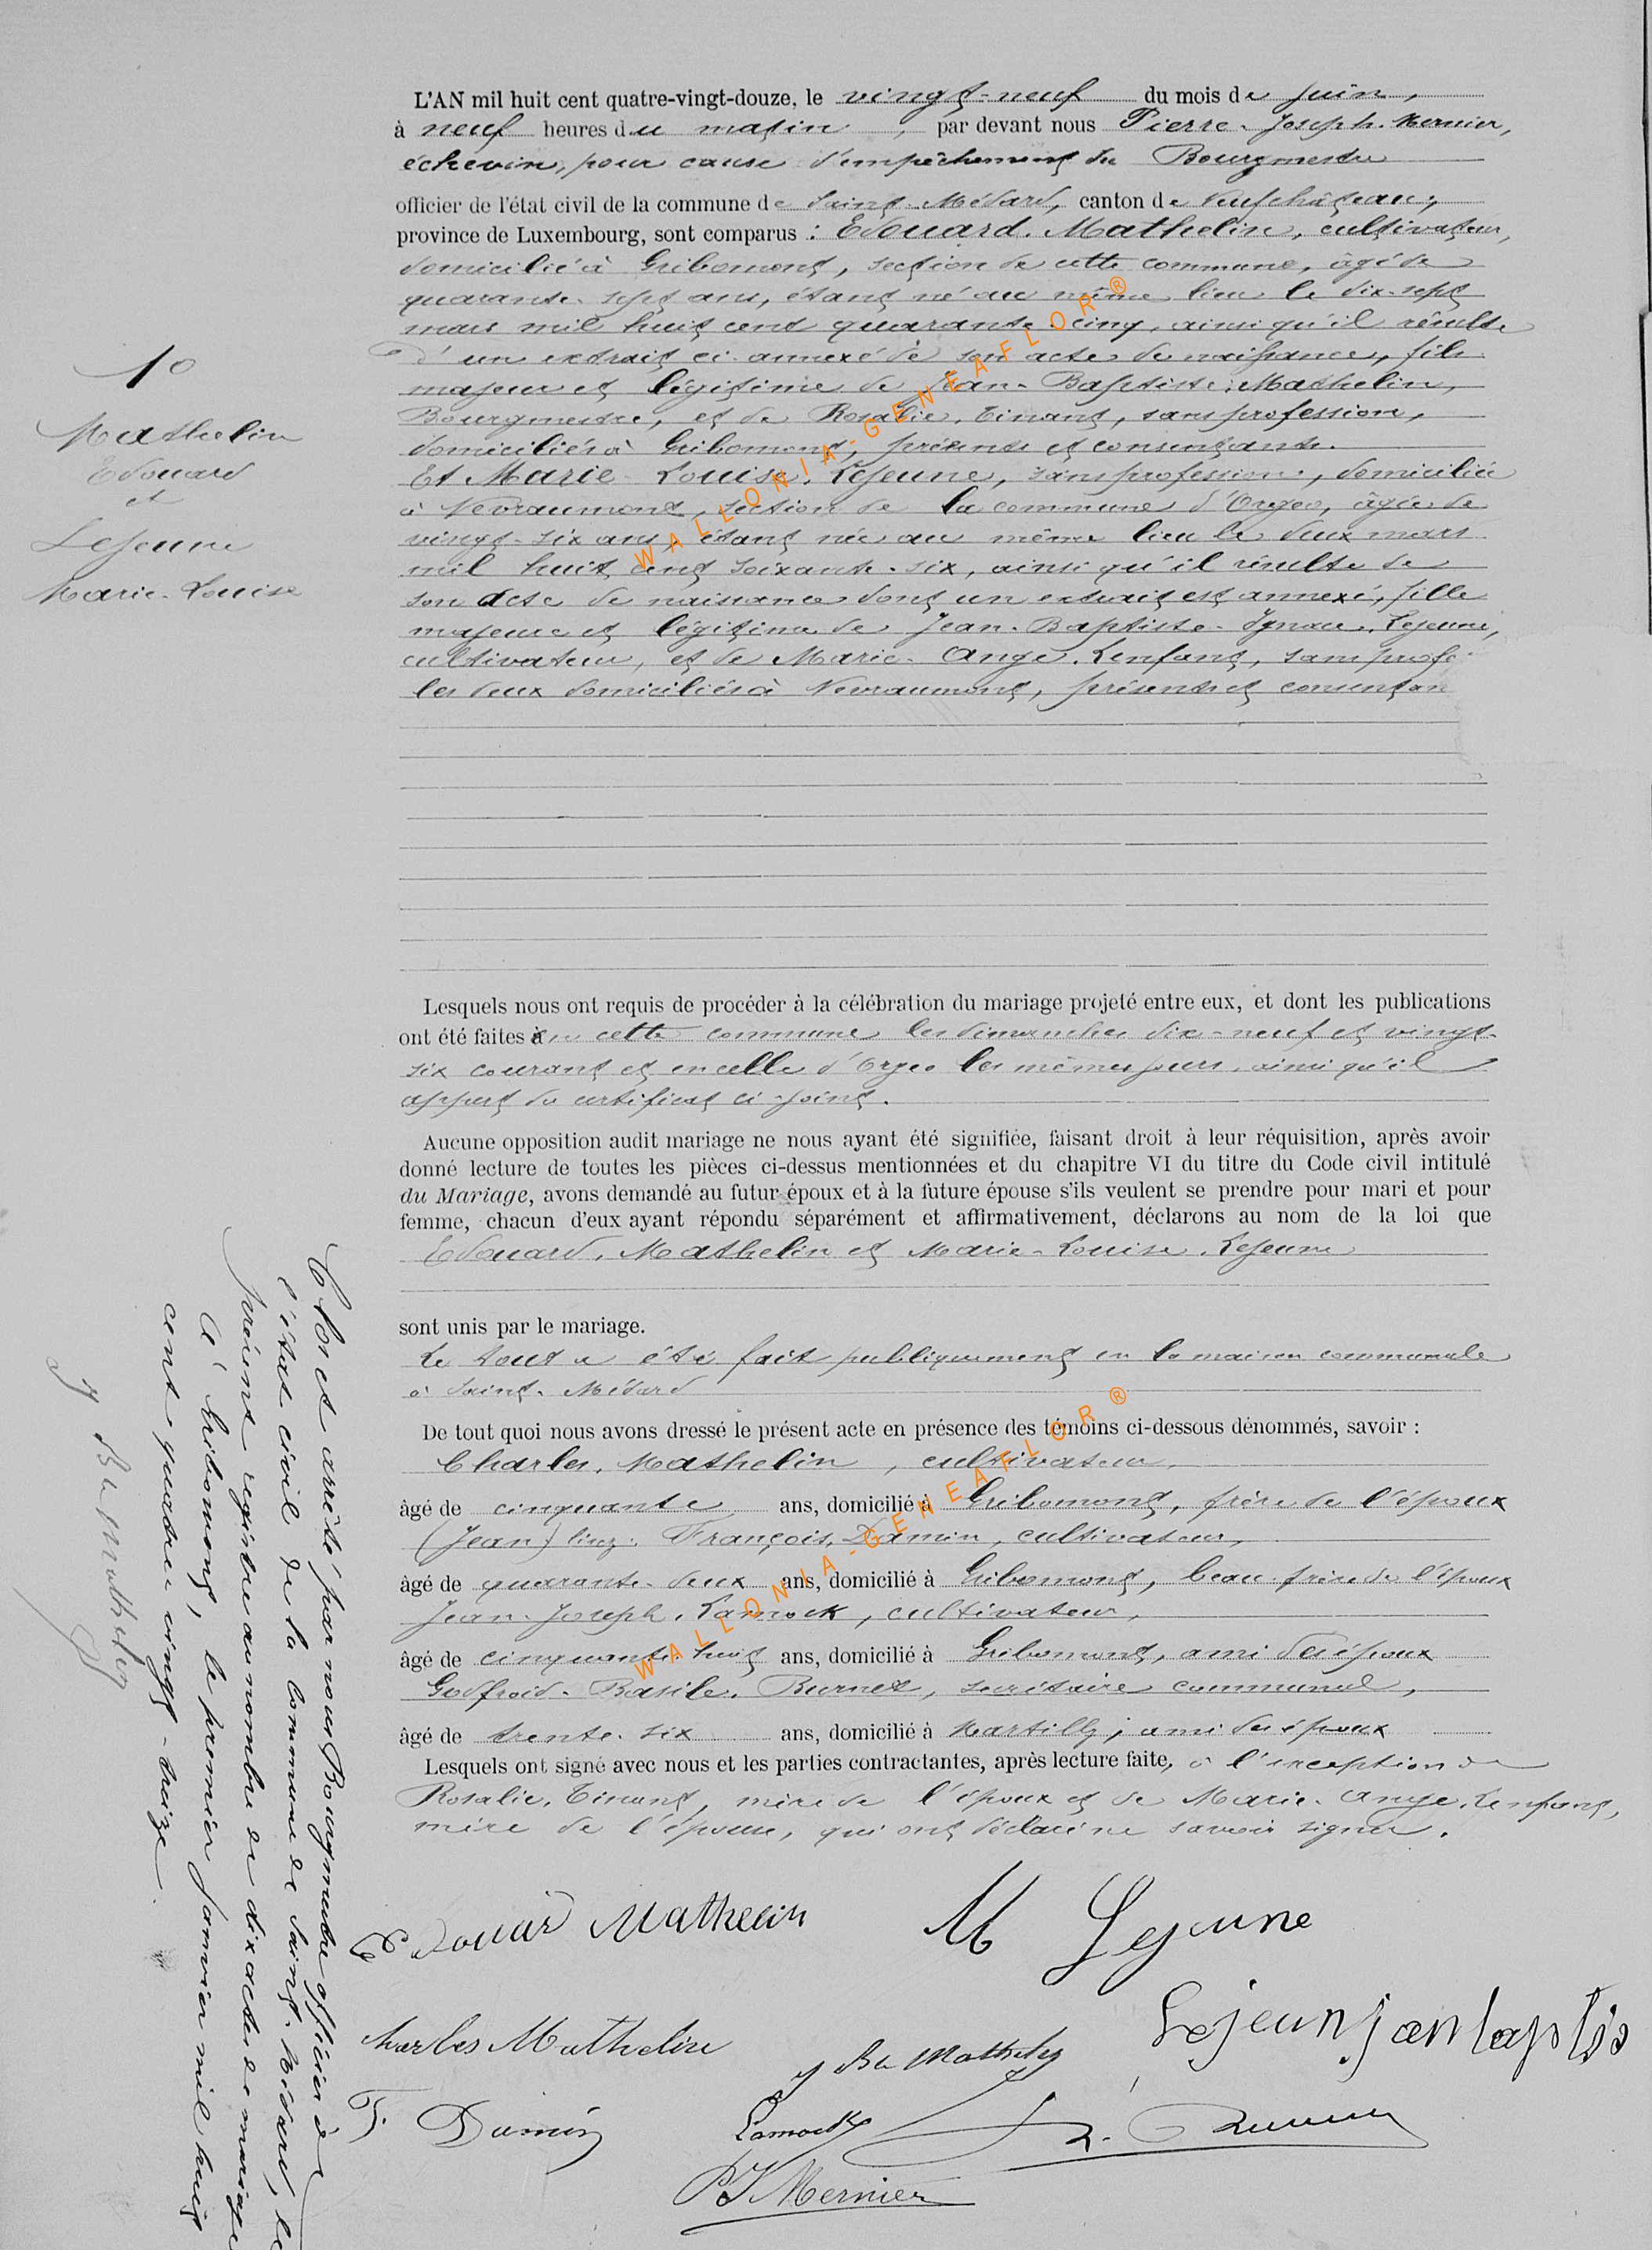 L'AN mil huit cent quatre-vingt-douze, le vingt-neuf du mois de Juin,
à neuf heures du matin, par devant nous Pierre-Joseph Mernier,
échevin, pour cause d'empêchement du Bourgmestre
officier de l'état civil de la commune de Saint-Médard, canton de Neufchâteau,
province de Luxembourg, sont comparus : Edouard Mathelin, cultivateur,
domicilié à Gribomont, section de cette commune, âgé de
quarante-sept ans, étant né au même lieu le dix-sept
mars mil huit cent quarante-cinq, ainsi qu'il résulte
d'un extrait ci-annexé de son acte de naissance, fils
majeur et légitime de Jean-Baptiste Mathelin,
Bourgmestre, et de Rosalie Tinant, sans profession,
domiciliés à Gribomont, présents et consentants.
Et Marie-Louise Lejeune, sans profession, domiciliée
à Nevraumont, section de la commune d'Orgeo, âgée de
vingt-six ans, étant née au même lieu le deux mars
mil huit cent soixante-six, ainsi qu'il résulte de
son acte de naissance dont un extrait est annexé, fille
majeure et légitime de Jean-Baptiste-Ignace Lejeune,
cultivateur, et de Marie-Ange Lenfant, sans profe
les deux domiciliés à Nevraumont, présents et consentan
10
Mathelin
Edouard
et
Lejeune
Marie-Louise
Lesquels nous ont requis de procéder à la célébration du mariage projeté entre eux, et dont les publications
ont été faites en cette commune les dimanches dix-neuf et vingt-
six courant et en celle d'Orgeo les mêmes jours, ainsi qu'il
appert du certificat ci-joint.
Aucune opposition audit mariage ne nous ayant été signifiée, faisant droit à leur réquisition, après avoir
donné lecture de toutes les pièces ci-dessus mentionnées et du chapitre VI du titre du Code civil intitulé
du Mariage, avons demandé au futur époux et à la future épouse s'ils veulent se prendre pour mari et pour
femme, chacun d'eux ayant répondu séparément et affirmativement, déclarons au nom de la loi que
Edouard Mathelin et Marie-Louise Lejeune
sont unis par le mariage.
Le tout a été fait publiquement en la maison communale
à Saint-Médard
De tout quoi nous avons dressé le présent acte en présence des témoins ci-dessous dénommés, savoir :
Charles Mathelin, cultivateur,
âgé de cinquante ans, domicilié à Gribomont, frère de l'époux
(Jean) François Damin, cultivateur,
âgé de quarante-deux ans, domicilié à Gribomont, beau-frère de l'époux
Jean-Joseph Lamock, cultivateur,
âgé de cinquante-huit ans, domicilié à Gribomont, ami des époux
Godfroid-Basile Burnet, secrétaire communal,
âgé de trente-six ans, domicilié à Martilly, ami des époux
Lesquels ont signé avec nous et les parties contractantes, après lecture faite, à l'exception de
Rosalie Tinant, mère de l'époux et de Marie-Ange Lenfant,
mère de l'épouse, qui ont déclaré ne savoir signer.
Edouar Mathelin
M Lejeune
Charles Mathelin
J Bte Mathelin
Lejeun jan baptis
F. Damin
Lamock
PJ Mernier
Clos et arrêté par nous Bourgmestre officier de
l'état civil de la commune de Saint-Médard, le
présent registre au nombre de dix actes de mariage
à Gribomont, le premier janvier mil huit
cent quatre-vingt-treize.
J Bte Mathelin
WALLONIA-GENEAFLOR®
WALLONIA-GENEAFLOR®